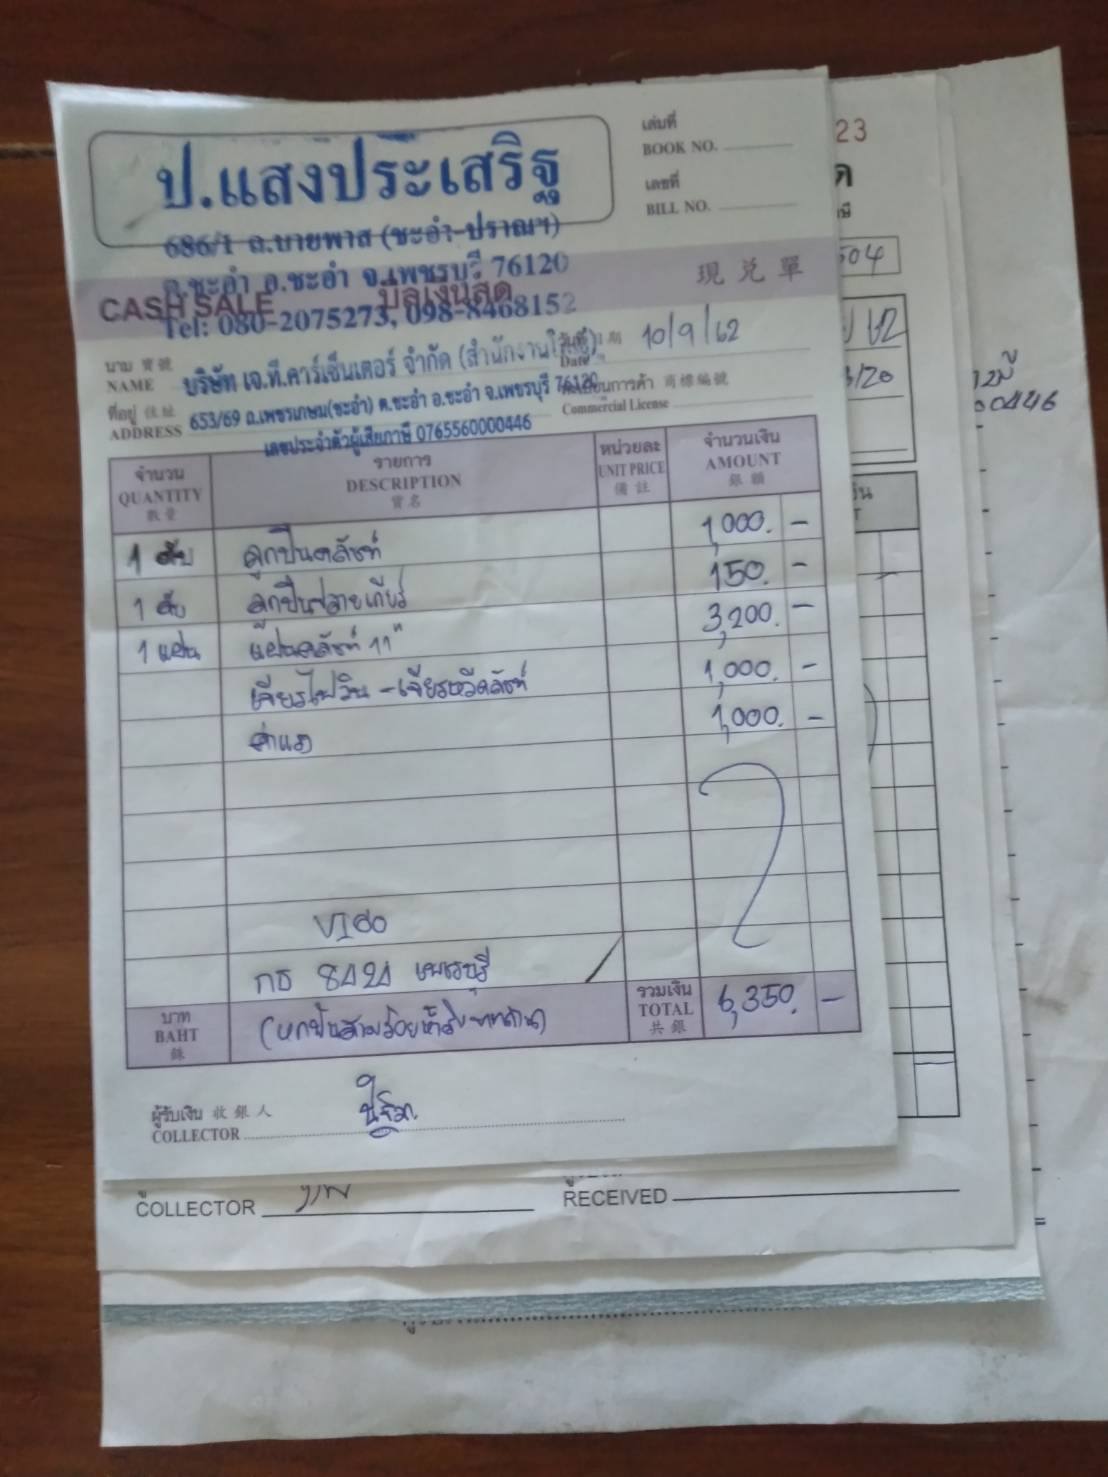 ป.แสงประเสริฐ
686/1 ถ.บายพาส (ชะอำ-ปราณฯ)
ต.ชะอำ อ.ชะอำ จ.เพชรบุรี 76120
Tel: 080-2075273, 098-8468152
เล่มที่
BOOK NO.
เลขที่
BILL NO.
CASH SALE บิลเงินสด 現兑單
นาม 寶號
NAME บริษัท เจ.ที.คาร์เซ็นเตอร์ จำกัด (สำนักงานใหญ่)
วันที่ 日期
Date 10/9/62
ที่อยู่ 住址
ADDRESS 653/69 ถ.เพชรเกษม(ชะอำ) ต.ชะอำ อ.ชะอำ จ.เพชรบุรี 76120
เลขประจำตัวผู้เสียภาษี 0765560000446
ทะเบียนการค้า 商標編號
Commercial License
จำนวน
QUANTITY
數量
รายการ
DESCRIPTION
貨名
หน่วยละ
UNIT PRICE
備註
จำนวนเงิน
AMOUNT
銀額
1 ตับ ลูกปืนคลัชท์ 1,000. -
1 ตับ ลูกปืนปลายเกียร์ 150. -
1 แผ่น แผ่นคลัชท์ 11" 3,200. -
เจียรไฟวิน - เจียรหวีคลัชท์ 1,000. -
ค่าแรง 1,000. -
กธ 8424 เพชรบุรี
บาท
BAHT
銖
(หกพันสามร้อยห้าสิบบาทถ้วน)
รวมเงิน
TOTAL
共銀
6,350. -
ผู้รับเงิน 收銀人
COLLECTOR
COLLECTOR
RECEIVED
23
504
62
3/20
00446